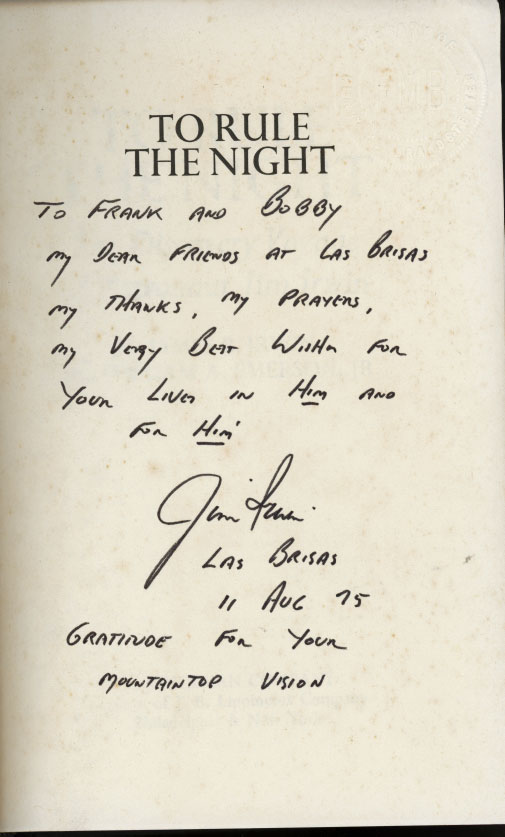 TO RULE
THE NIGHT
TO FRANK AND BOBBY
MY DEAR FRIENDS AT LAS BRISAS
MY THANKS, MY PRAYERS,
MY VERY BEST WISHES FOR
YOUR LIVES IN HIM AND
FOR HIM!
Jim Irwin
LAS BRISAS
11 AUG 75
GRATITUDE FOR YOUR
MOUNTAINTOP VISION